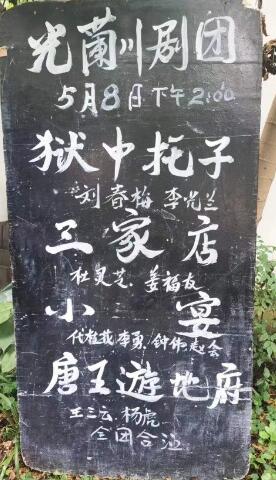 光蘭川剧团
5月8日下午2:00
狱中托子
刘春梅 李光兰
三家店
杜灵芝. 姜福友
小宴
代桂茂.李勇.钟伟.赵会
唐王遊地府
王三云.杨虎
全团合演